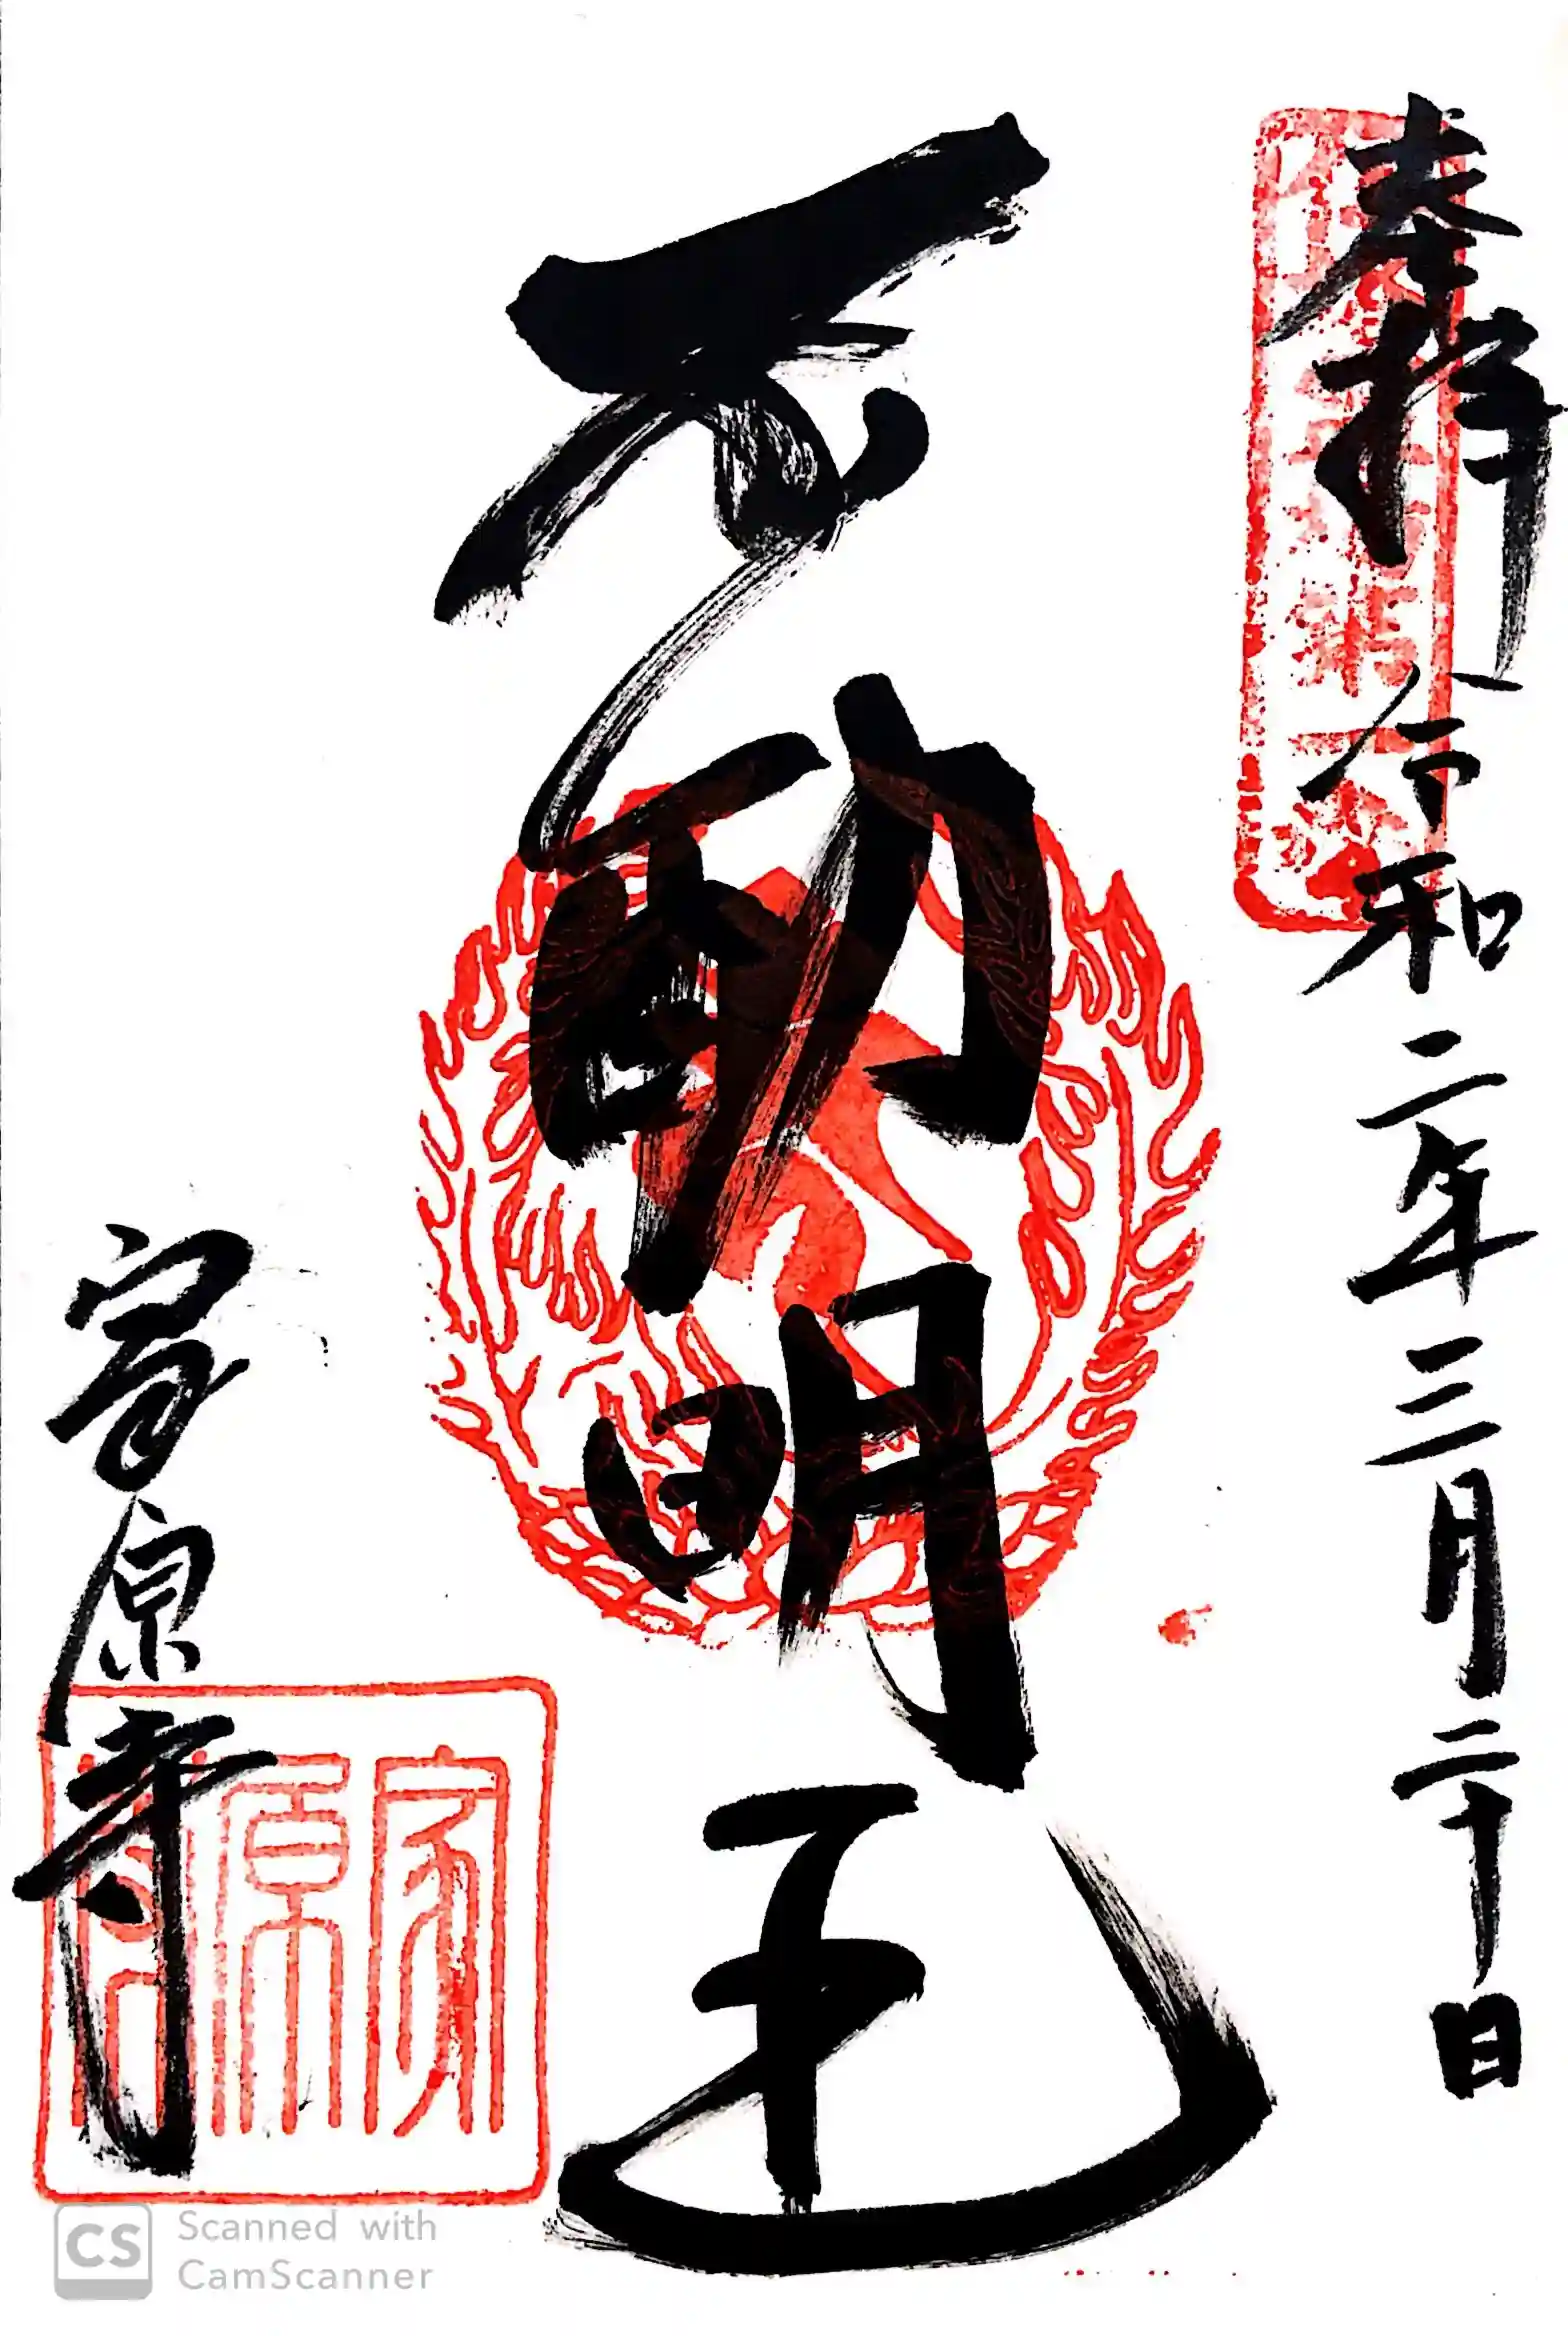 奉拝 令和二年三月二十日
不動明王
家原寺
家原寺
CS Scanned with
CamScanner